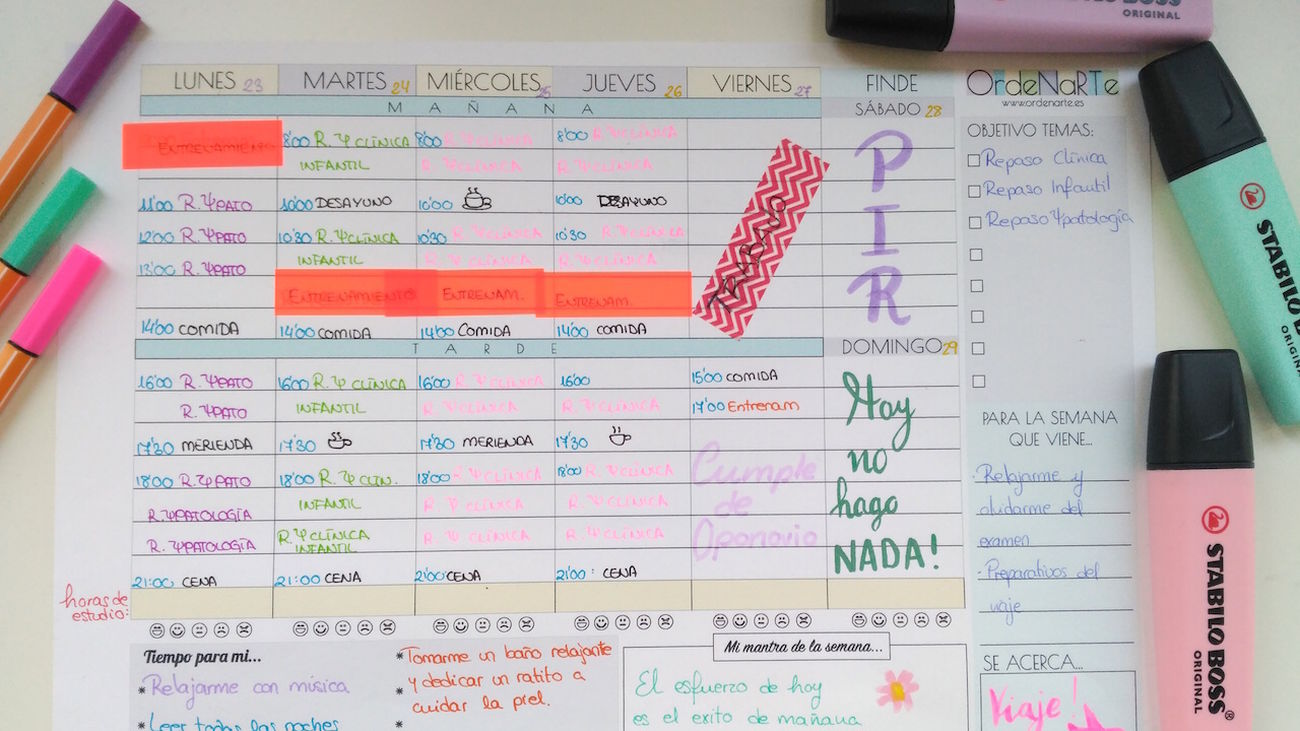 BOSS
ORIGINAL
LUNES 23
MARTES 24
MIÉRCOLES 25
JUEVES 26
VIERNES 27
FINDE
OrdeNaRTe
www.ordenarte.es
MAÑANA
SÁBADO 28
ENTRENAMIENTO
8'00 R. Ψ CLÍNICA
8'00 R. Ψ CLÍNICA
8'00 R. Ψ CLÍNICA
INFANTIL
R. Ψ CLÍNICA
R. Ψ CLÍNICA
11'00 R. ΨPATO
10'00 DESAYUNO
10'00
10'00 DESAYUNO
12'00 R. ΨPATO
10'30 R. ΨCLÍNICA
10'30 R. ΨCLÍNICA
10'30 R. ΨCLÍNICA
13'00 R. ΨPATO
INFANTIL
R. ΨCLÍNICA
R. ΨCLÍNICA
ENTRENAMIENTO
ENTRENAM.
ENTRENAM.
14'00 COMIDA
14'00 COMIDA
14'00 COMIDA
14'00 COMIDA
PIR
OBJETIVO TEMAS:
Repaso Clínica
Repaso Infantil
Repaso Ψpatología
TARDE
DOMINGO 29
16'00 R. ΨPATO
16'00 R. Ψ CLÍNICA
16'00 R. Ψ CLÍNICA
16'00
15'00 COMIDA
R. ΨPATO
INFANTIL
R. Ψ CLÍNICA
R. Ψ CLÍNICA
17'00 Entrenam
17'30 MERIENDA
17'30
17'30 MERIENDA
17'30
18'00 R. ΨPATO
18'00 R. Ψ CLIN.
18'00 R. Ψ CLÍNICA
18'00 R. Ψ CLÍNICA
R. ΨPATOLOGÍA
INFANTIL
R. Ψ CLÍNICA
R. Ψ CLÍNICA
R. ΨPATOLOGÍA
R. Ψ CLÍNICA
INFANTIL
R. Ψ CLÍNICA
R. Ψ CLÍNICA
21:00 CENA
21:00 CENA
21'00 CENA
21'00: CENA
Cumple
de
Oponovio
Hoy
no
hago
NADA!
PARA LA SEMANA
QUE VIENE...
· Relajarme y
olvidarme del
examen
· Preparativos del
viaje
horas de
estudio:
Tiempo para mi...
* Relajarme con música
* Leer todas las noches
* Tomarme un baño relajante
* y dedicar un ratito a
cuidar la piel.
*
Mi mantra de la semana...
El esfuerzo de hoy
es el exito de mañana
SE ACERCA...
Viaje!
STABILO BOSS
ORIGINAL
STABILO BOSS
ORIGINAL